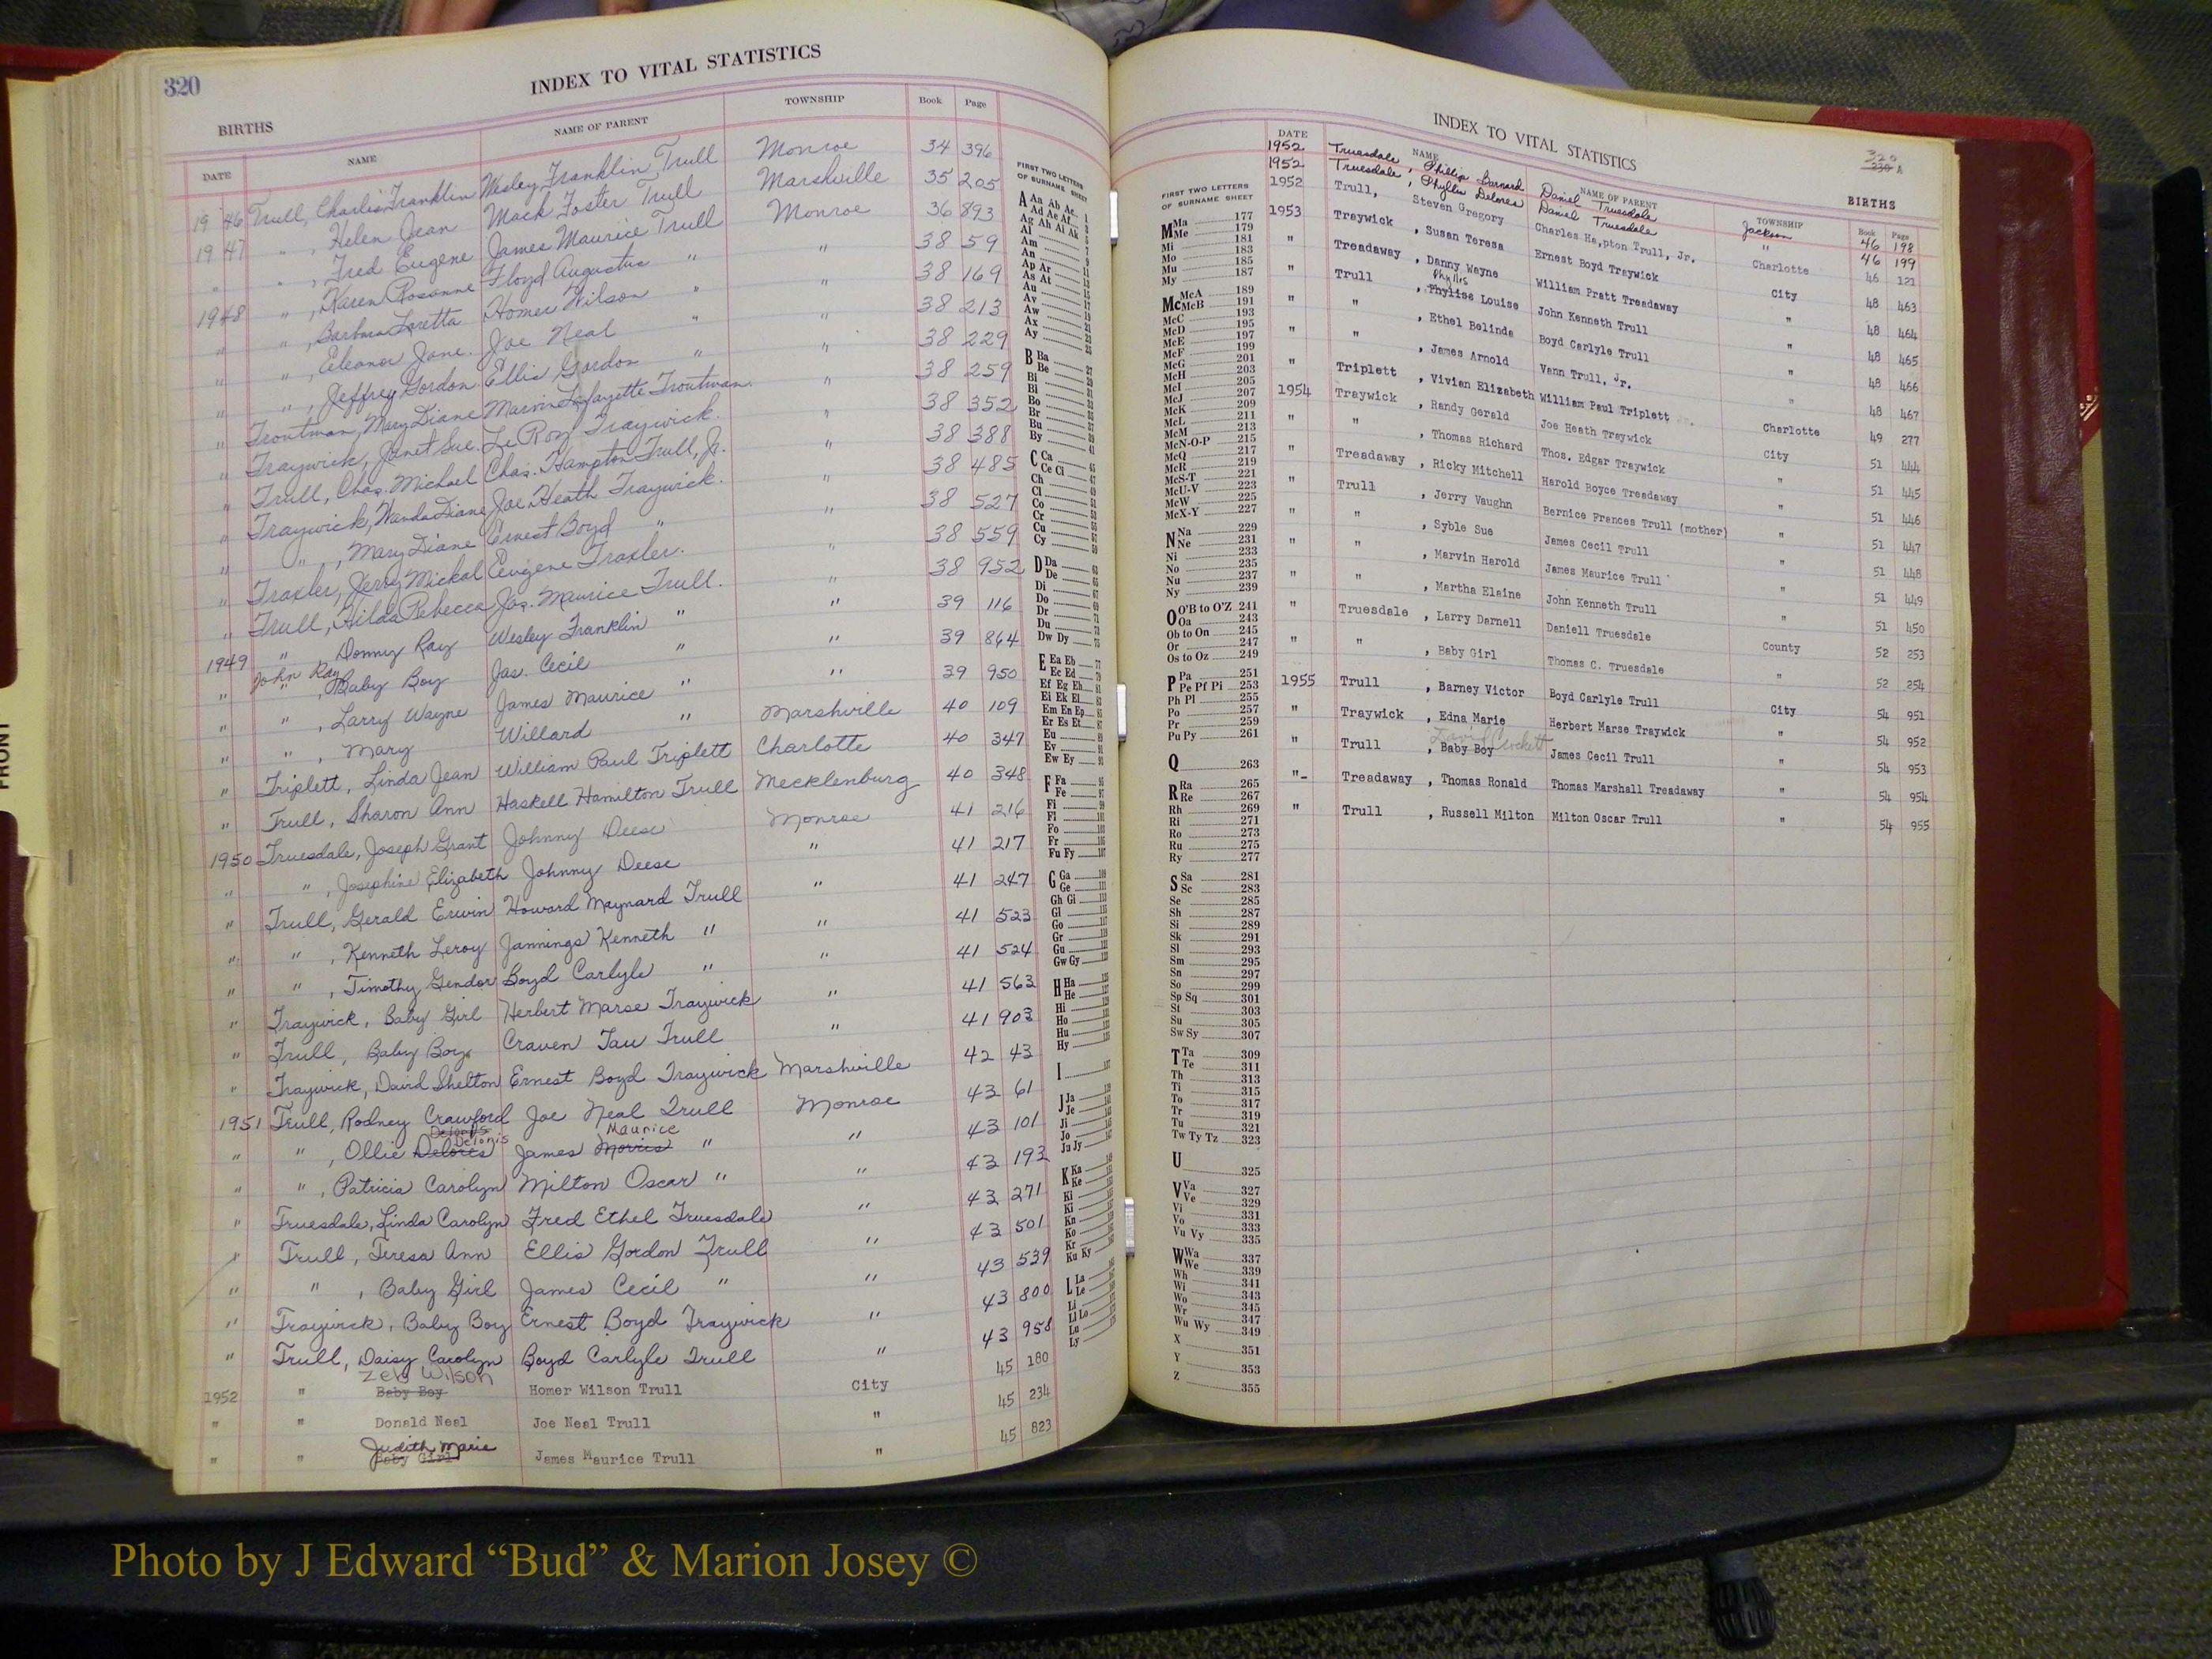 320
INDEX TO VITAL STATISTICS
BIRTHS
DATE NAME NAME OF PARENT TOWNSHIP Book Page
1946 Trull, Charlie Franklin Wesley Franklin Trull Monroe 34 396
1947 " , Helen Jean Mack Foster Trull Marshville 35 205
" " , Fred Eugene James Maurice Trull Monroe 36 893
1948 " , Karen Rosanne Floyd Augustus " " 38 59
" " , Barbara Loretta Homer Wilson " " 38 169
" " , Eleanor Jane Joe Neal " " 38 213
" " , Jeffrey Gordon Ellis Gordon " " 38 229
" Troutman, Mary Diane Marvin Lafayette Troutman " 38 259
" Traywick, Janet Sue LeRoy Traywick " 38 352
" Trull, Chas. Michael Chas. Hampton Trull, Jr. " 38 388
" Traywick, Wanda Diane Joe Heath Traywick " 38 485
" " , Mary Diane Ernest Boyd " " 38 527
" Traxler, Jerry Mickal Eugene Traxler " 38 559
" Trull, Hilda Rebecca Jas. Maurice Trull " 38 952
1949 " Donny Ray Wesley Franklin " " 39 116
John Ray
" " , Baby Boy Jas. Cecil " " 39 864
" " , Larry Wayne James Maurice " " 39 950
" " , Mary Willard " Marshville 40 109
" Triplett, Linda Jean William Paul Triplett Charlotte 40 347
" Trull, Sharon Ann Haskell Hamilton Trull Mecklenburg 40 348
1950 Truesdale, Joseph Grant Johnny Deese Monroe 41 216
" " , Josephine Elizabeth Johnny Deese " 41 217
" Trull, Gerald Erwin Howard Maynard Trull " 41 247
" " , Kenneth Leroy Jannings Kenneth " " 41 523
" " , Timothy Gendor Boyd Carlyle " " 41 524
" Traywick, Baby Girl Herbert Marse Traywick " 41 563
" Trull, Baby Boy Craven Tau Trull " 41 903
" Traywick, David Shelton Ernest Boyd Traywick Marshville 42 43
1951 Trull, Rodney Crawford Joe Neal Trull Monroe 43 61
Deloris Maurice
" " , Ollie Delores James Morris " " 43 101
" " , Patricia Carolyn Milton Oscar " " 43 192
" Truesdale, Linda Carolyn Fred Ethel Truesdale " 43 271
" Trull, Teresa Ann Ellis Gordon Trull " 43 501
" " , Baby Girl James Cecil " " 43 539
" Traywick, Baby Boy Ernest Boyd Traywick " 43 800
" Trull, Daisy Carolyn Boyd Carlyle Trull " 43 958
Zeb Wilson
1952 " Baby Boy Homer Wilson Trull City 45 180
" " Donald Neal Joe Neal Trull " 45 234
Judith Marie
" " Baby Girl James Maurice Trull " 45 823
FIRST TWO LETTERS
OF SURNAME SHEET
A Aa Ab Ac 1
Ad Ae Af
Ag Ah Ai Ak
Al
Am
An
Ap Ar
As At
Au
Av
Aw
Ax
Ay
B Ba
Be
Bi
Bl
Bo
Br
Bu
By
C Ca
Ce Ci
Ch
Cl
Co
Cr
Cu
Cy
D Da
De
Di
Do
Dr
Du
Dw Dy
E Ea Eb
Ec Ed
Ef Eg Eh
Ei Ek El
Em En Ep
Er Es Et
Eu
Ev
Ew Ey
F Fa
Fe
Fi
Fl
Fo
Fr
Fu Fy
G Ga
Ge
Gh Gi
Gl
Go
Gr
Gu
Gw Gy
H Ha
He
Hi
Ho
Hu
Hy
I
J Ja
Je
Ji
Jo
Ju Jy
K Ka
Ke
Ki
Kl
Kn
Ko
Kr
Ku Ky
L La
Le
Li
Ll Lo
Lu
Ly
INDEX TO VITAL STATISTICS
320
230 A
BIRTHS
DATE NAME NAME OF PARENT TOWNSHIP Book Page
1952 Truesdale, Phillip Barnard Daniel Truesdale Jackson 46 198
1952 Truesdale, Phyllis Delores Daniel Truesdale " 46 199
1952 Trull, Steven Gregory Charles Ha,pton Trull, Jr. Charlotte 46 121
1953 Traywick , Susan Teresa Ernest Boyd Traywick City 48 463
" Treadaway , Danny Wayne William Pratt Treadaway " 48 464
Phyllis
" Trull , Phylise Louise John Kenneth Trull " 48 465
" " , Ethel Belinda Boyd Carlyle Trull " 48 466
" " , James Arnold Vann Trull, Jr. " 48 467
" Triplett , Vivian Elizabeth William Paul Triplett Charlotte 49 277
1954 Traywick , Randy Gerald Joe Heath Traywick City 51 444
" " , Thomas Richard Thos. Edgar Traywick " 51 445
" Treadaway , Ricky Mitchell Harold Boyce Treadaway " 51 446
" Trull , Jerry Vaughn Bernice Frances Trull (mother) " 51 447
" " , Syble Sue James Cecil Trull " 51 448
" " , Marvin Harold James Maurice Trull " 51 449
" " , Martha Elaine John Kenneth Trull " 51 450
" Truesdale , Larry Darnell Daniell Truesdale County 52 253
" " , Baby Girl Thomas C. Truesdale " 52 254
1955 Trull , Barney Victor Boyd Carlyle Trull City 54 951
" Traywick , Edna Marie Herbert Marse Traywick " 54 952
David Crockett
" Trull , Baby Boy James Cecil Trull " 54 953
"- Treadaway , Thomas Ronald Thomas Marshall Treadaway " 54 954
" Trull , Russell Milton Milton Oscar Trull " 54 955
FIRST TWO LETTERS
OF SURNAME SHEET
M Ma 177
Me 179
Mi 181
Mo 183
Mu 185
My 187
Mc McA 189
McB 191
McC 193
McD 195
McE 197
McF 199
McG 201
McH 203
McI 205
McJ 207
McK 209
McL 211
McM 213
McN-O-P 215
McQ 217
McR 219
McS-T 221
McU-V 223
McW 225
McX-Y 227
N Na 229
Ne 231
Ni 233
No 235
Nu 237
Ny 239
O O'B to O'Z 241
Oa 243
Ob to On 245
Or 247
Os to Oz 249
P Pa 251
Pe Pf Pi 253
Ph Pl 255
Po 257
Pr 259
Pu Py 261
Q 263
R Ra 265
Re 267
Rh 269
Ri 271
Ro 273
Ru 275
Ry 277
S Sa 281
Sc 283
Se 285
Sh 287
Si 289
Sk 291
Sl 293
Sm 295
Sn 297
So 299
Sp Sq 301
St 303
Su 305
Sw Sy 307
T Ta 309
Te 311
Th 313
Ti 315
To 317
Tr 319
Tu 321
Tw Ty Tz 323
U 325
V Va 327
Ve 329
Vi 331
Vo 333
Vu Vy 335
W Wa 337
We 339
Wh 341
Wi 343
Wo 345
Wr 347
Wu Wy 349
X 351
Y 353
Z 355
FRONT
Photo by J Edward “Bud” & Marion Josey ©